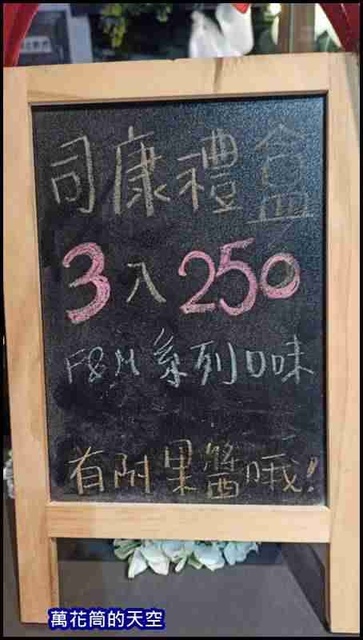 司康禮盒
3入250
F&M系列口味
有附果醬哦!
萬花筒的天空